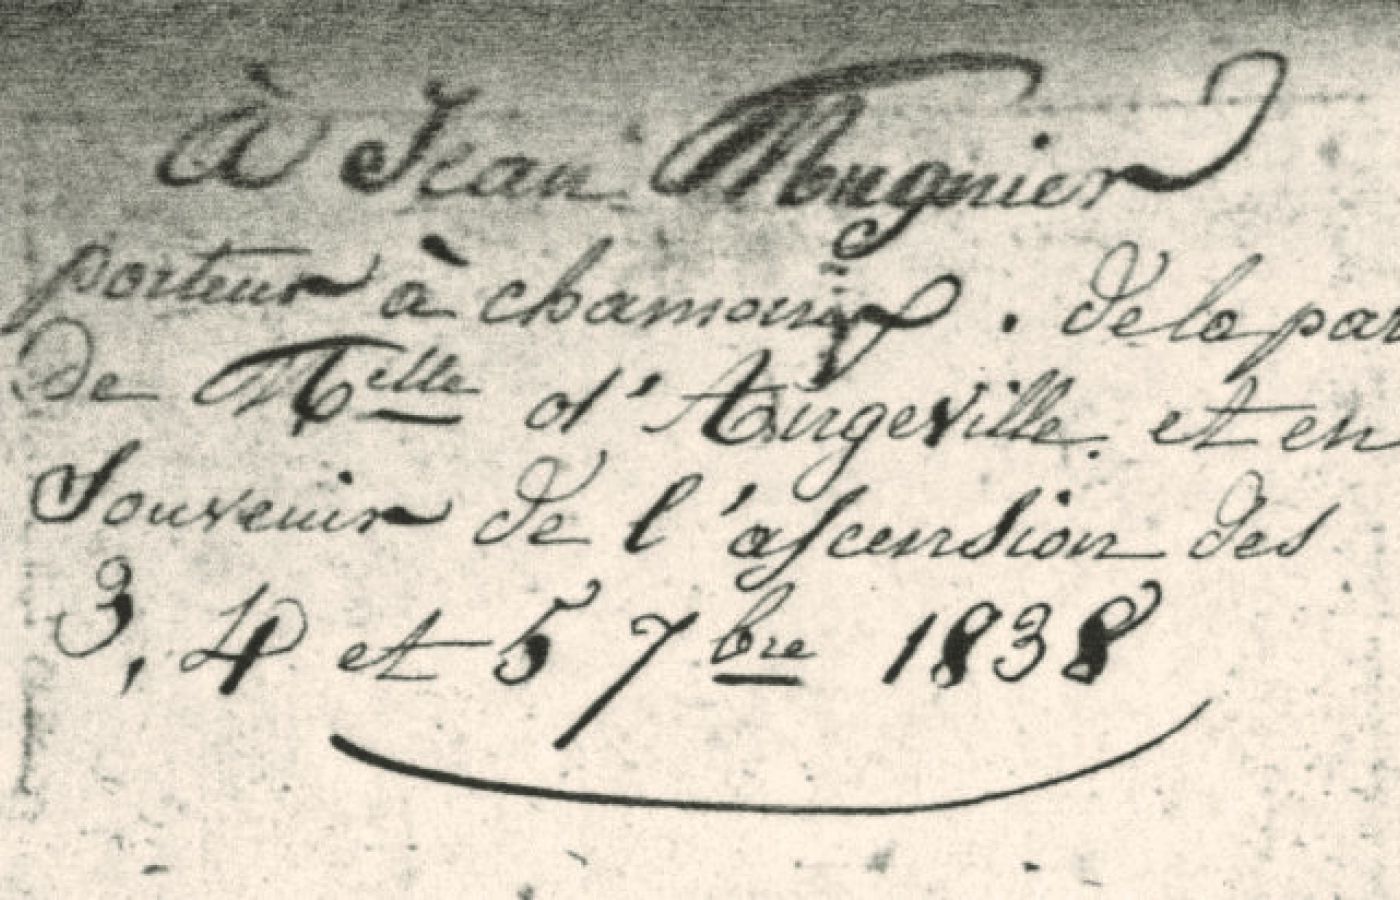 à Jean Mugnier
porteur à chamounix . de la par
de Melle d'Angeville et en
Souvenir de l'ascension des
3, 4 et 5 7bre 1838